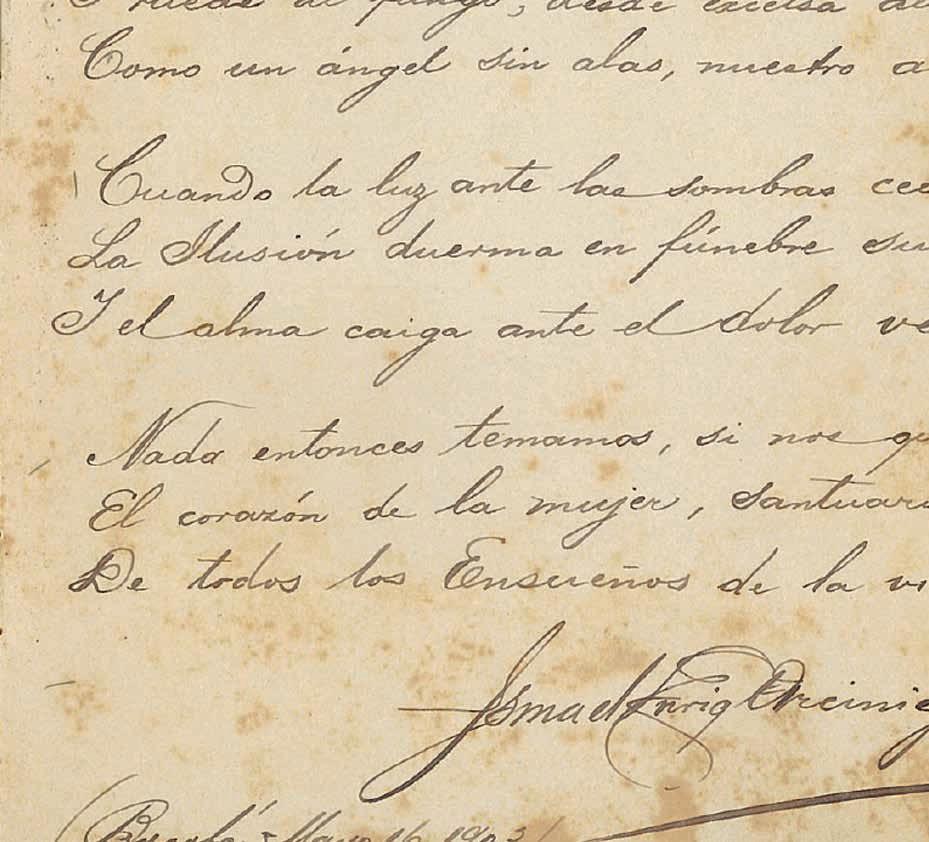 de fango, desde excelsa
Como un ángel sin alas, nuestro a
Cuando la luz ante las sombras ce
La Ilusión duerma en fúnebre su
I el alma caiga ante el dolor ve
Nada entonces temamos, si nos qu
El corazón de la mujer, santuari
De todos los Ensueños de la vi
Ismael Enriq Arcinieg
(Bogotá, Mayo 16 1903)